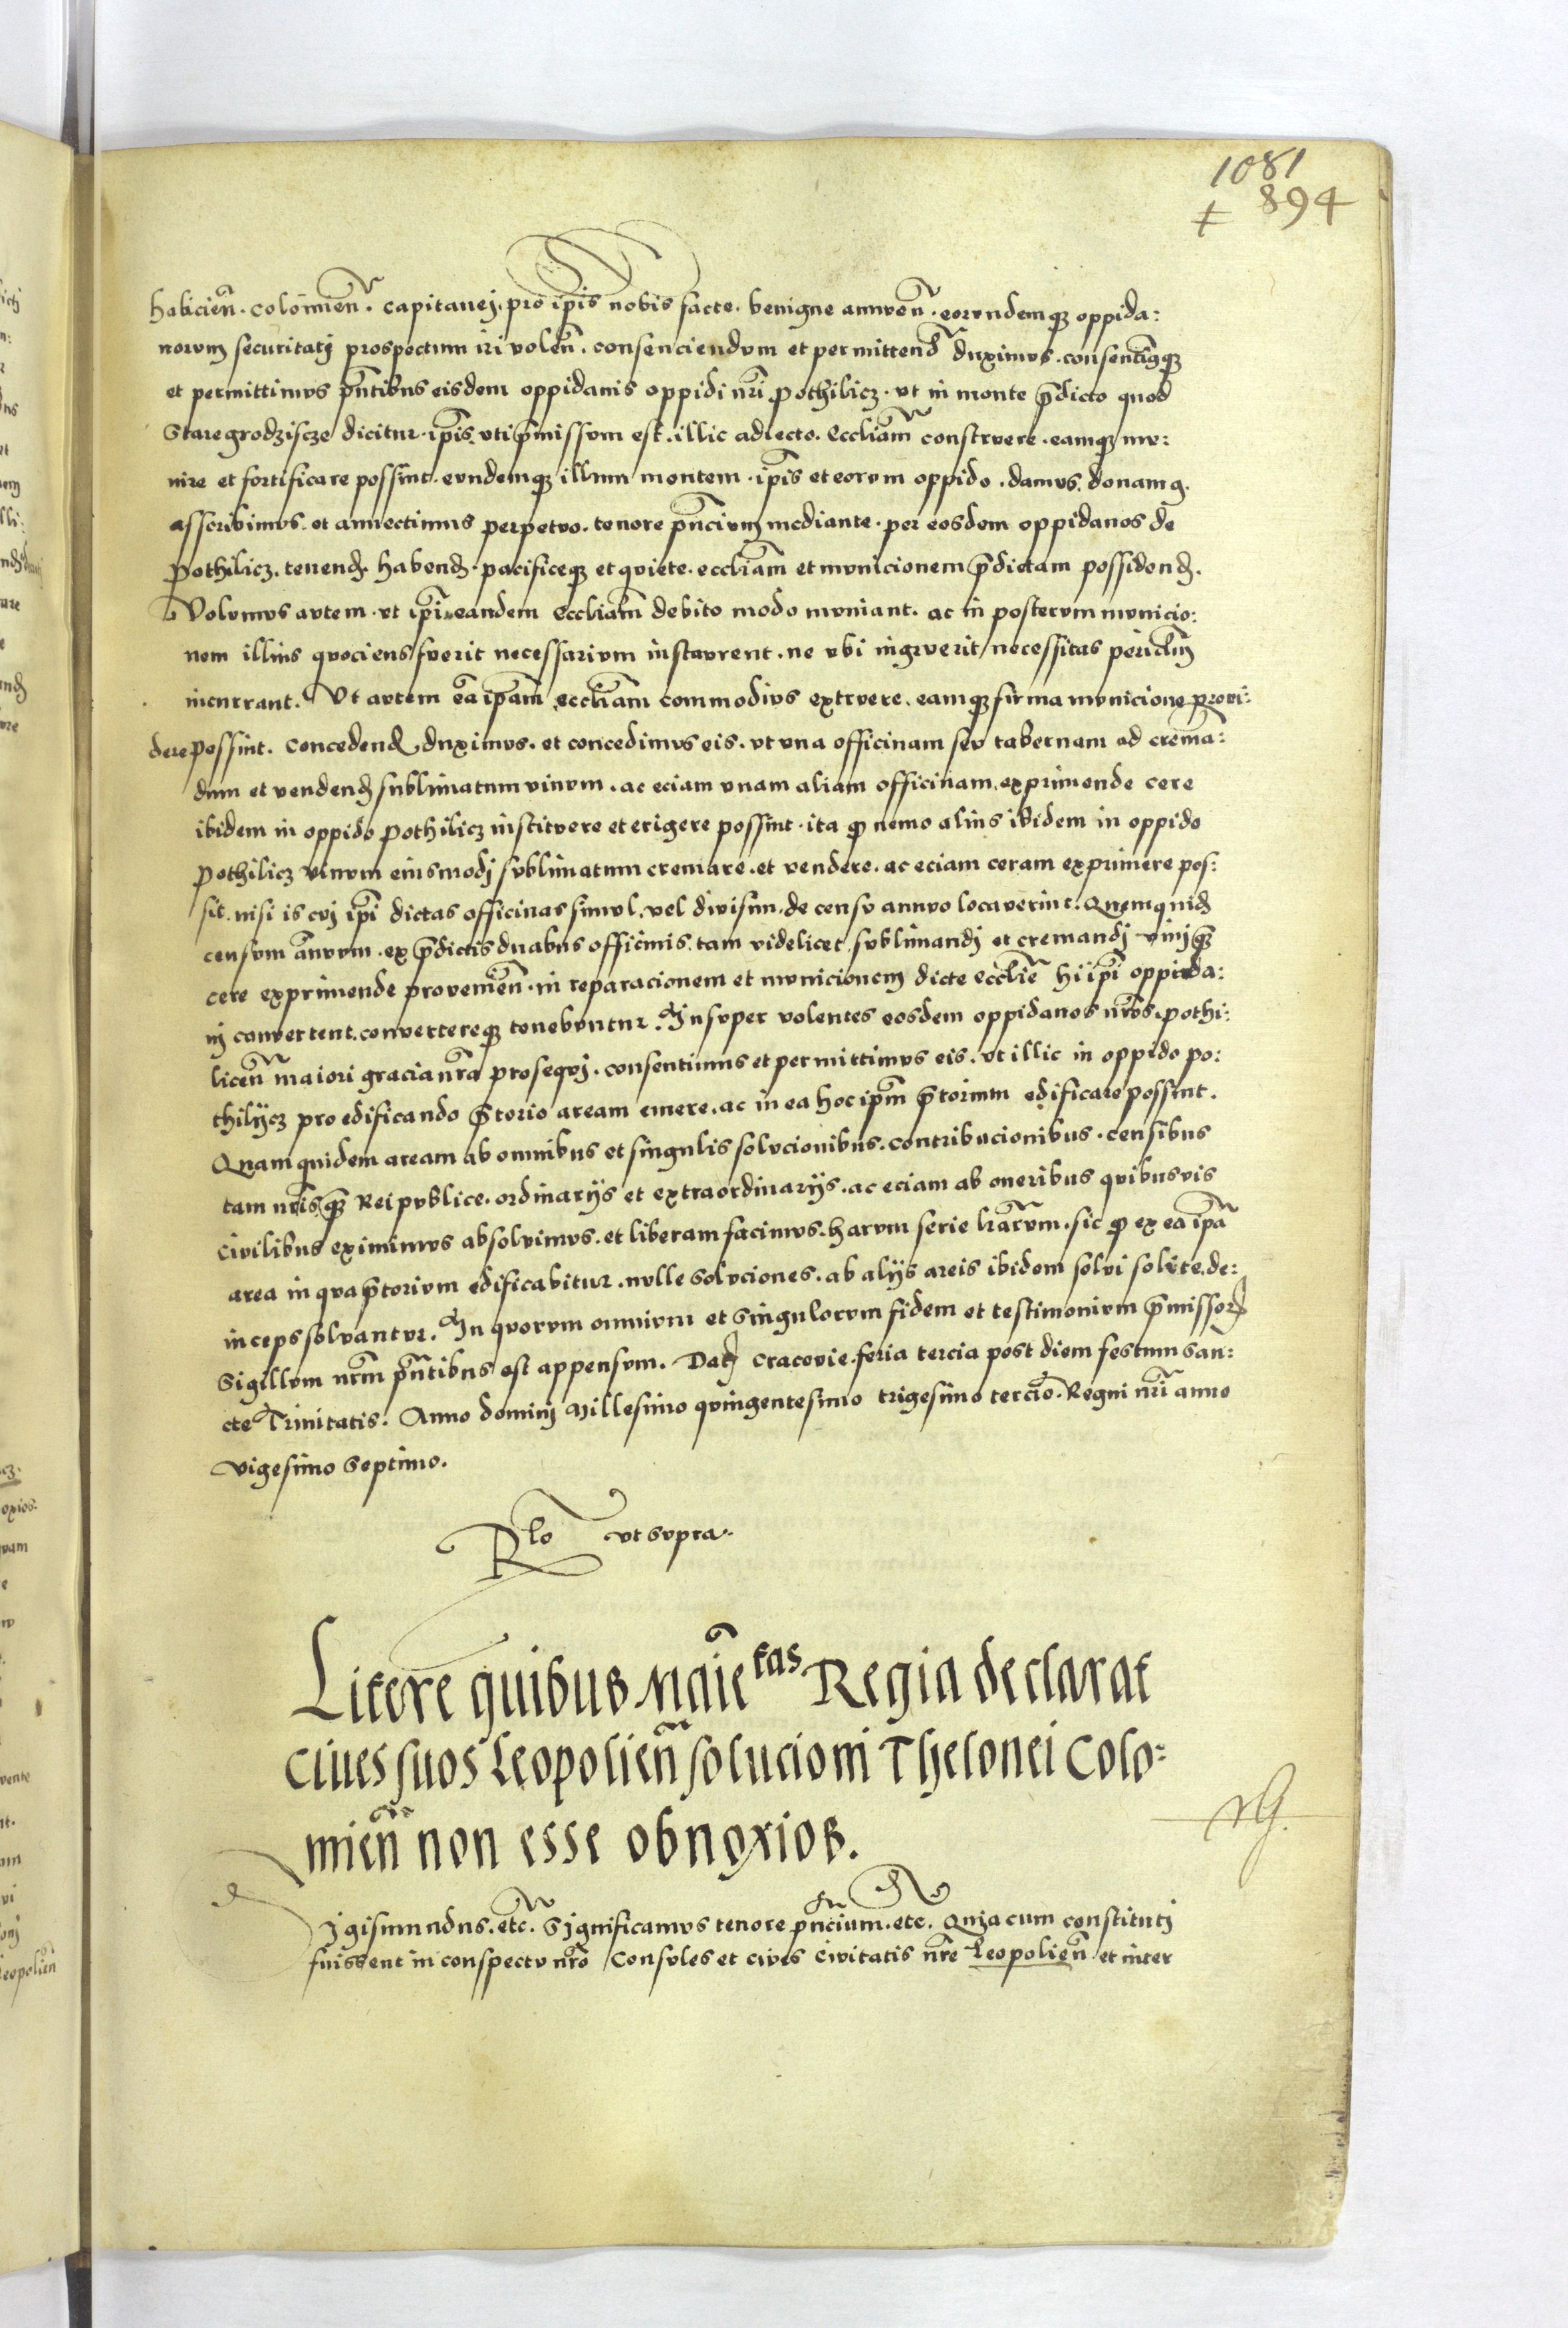 1081
+ 894
haliciēn. colomiēn. capitanej. pro ip̄is nobis facte. benigne annuēn. eorundemqȝ oppida:
norum securitatj prospectum iri volēn. consenciendum et permittenđ duximus. consentimqȝ
et permittimus p̄ntibus eisdem oppidanis oppidi nr̄i Pothilicz. ut in monte p̄dicto quod
Staregrodziscze dicitur. ip̄is uti p̄missum est. illic adiecto. eccliam̄ construere. eamqȝ mu:
nire et fortificare possint. eundemqȝ illum montem. ip̄is et eorum oppido. damus. donamq.
asscribimus. et annectimus perpetuo. tenore p̄ncium mediante. per eosdem oppidanos de
Pothilicz. tenenđ. habenđ. pacificeqȝ et quiete. eccliam̄ et municionem p̄dictam possidenđ.
Volumus autem. ut ip̄i eandem eccliam̄ debito modo muniant. ac in posterum municio:
nem illius quociens fuerit necessarium instaurent. ne ubi ingruerit necessitas pericl̄m
incurrant. Ut autem eā ip̄am eccliam̄ commodius extruere. eamqȝ firma municione provi:
dere possint. concedenđ duximus. et concedimus eis. ut una officinam seu tabernam ad crema:
dum et vendenđ sublimatum vinum. ac eciam unam aliam officinam exprimende cere
ibidem in oppido Pothilicz instituere et erigere possint. ita qȝ nemo alius ibidem in oppido
Pothilicz vinum eiusmodj sublimatum cremare. et vendere. ac eciam ceram exprimere pos:
sit. nisi is cuj ip̄i dictas officinas simul. vel divisim. de censu annuo locaverint. Quemquiđ
censum annuum. ex p̄dictis duabus officinis. tam videlicet sublimandj et cremandj vinj qȝ
cere exprimende proveniēn. in reparacionem et municionem dicte ecclie hi ip̄i oppida:
nj convertent. converttereqȝ tenebuntur. Insuper volentes eosdem oppidanos nr̄os. pothi:
licēn maiori gracia nr̄a prosequj. consentimus et permittimus eis. ut illic in oppido po:
thilijcz pro edificando p̄torio aream emere. ac in ea hoc ip̄m p̄torium edificare possint.
Quam quidem aream ab omnibus et singulis solucionibus. contribucionibus. censibus
tam nr̄is qȝ Reipublice. ordinarijs et extraordinarijs. ac eciam ab oneribus quibusvis
civilibus eximimus absolvimus. et liberam facimus. harum serie lr̄arum. sic qȝ ex ea ip̄a
area in qua p̄torium edificabitur. nulle soluciones. ab alijs areis ibidem solvi solite. de:
inceps solvantur. In quorum omnium et singulorum fidem et testimonium p̄missorꝝ
Sigillum nr̄m p̄ntibus est appensum. Datꝝ Cracovie. feria tercia post diem festum san:
cte Trinitatis. Anno dominj Millesimo quingentesimo trigesimo tercio. Regni nr̄i anno
vigesimo septimo.
Rlo ut supra.
Litere quibus Maiētas Regia declarat
Cives suos Leopoliēn solucioni Thelonei Colo:
miēn non esse obnoxios.
Sigismundus. etc. Significamus tenore p̄ncium. etc. Quia cum constitutj
fuissent in conspectu nr̄o Consules et cives Civitatis nr̄e Leopoliēn et inter